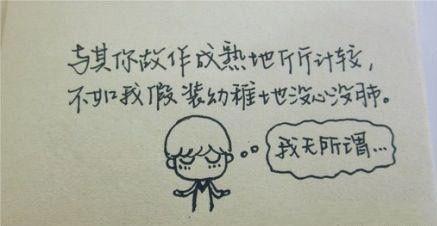 与其你故作成熟地斤斤计较，
不如我假装幼稚地没心没肺。
我无所谓…